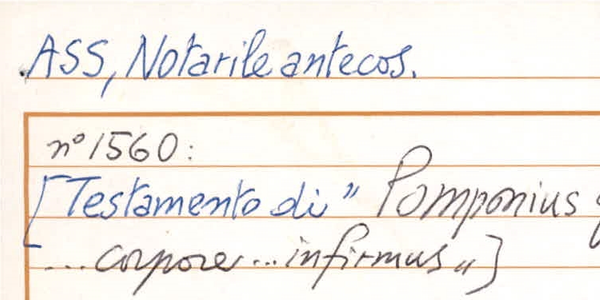 ASS, Notarile antecos.
n° 1560:
[Testamento di" Pomponius
...corpore...infirmus"]